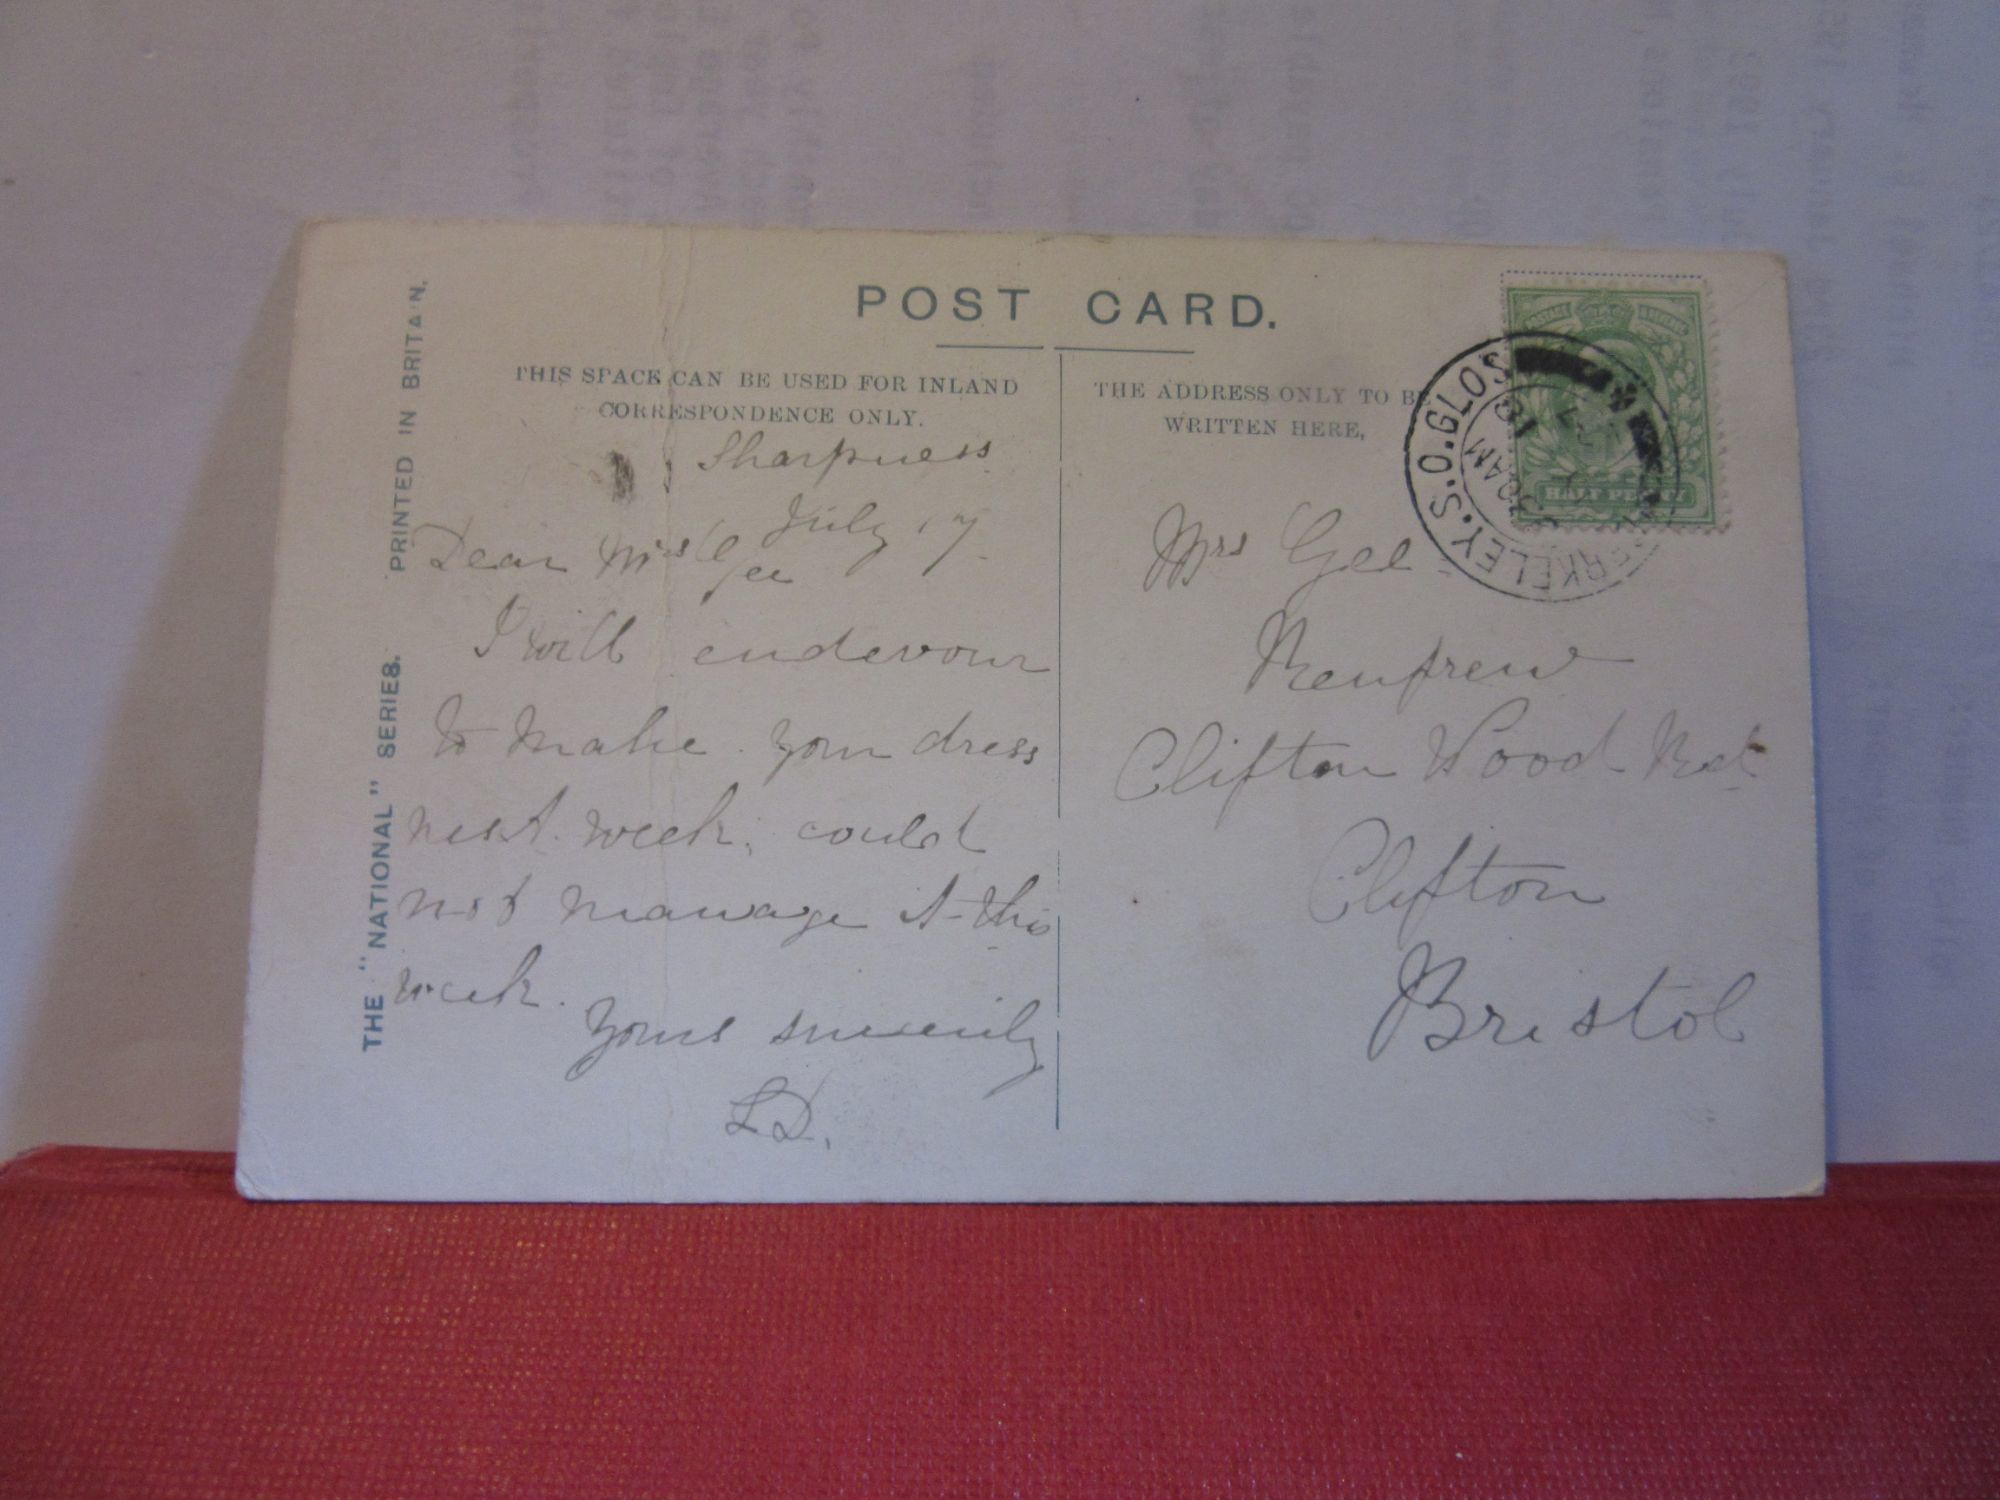 POST CARD.
THIS SPACE CAN BE USED FOR INLAND
CORRESPONDENCE ONLY.
THE ADDRESS ONLY TO BE
WRITTEN HERE,
THE "NATIONAL" SERIES. PRINTED IN BRITAIN.
Sharpness
July 17
Dear Mrs Gee
I will endevour
to make your dress
next week, could
not manage it this
week.
Yours sincerely
LD.
Mrs Gee
Renfrew
Clifton Wood Rd
Clifton
Bristol
HALF PENNY
BERKELEY.S.O.GLOS